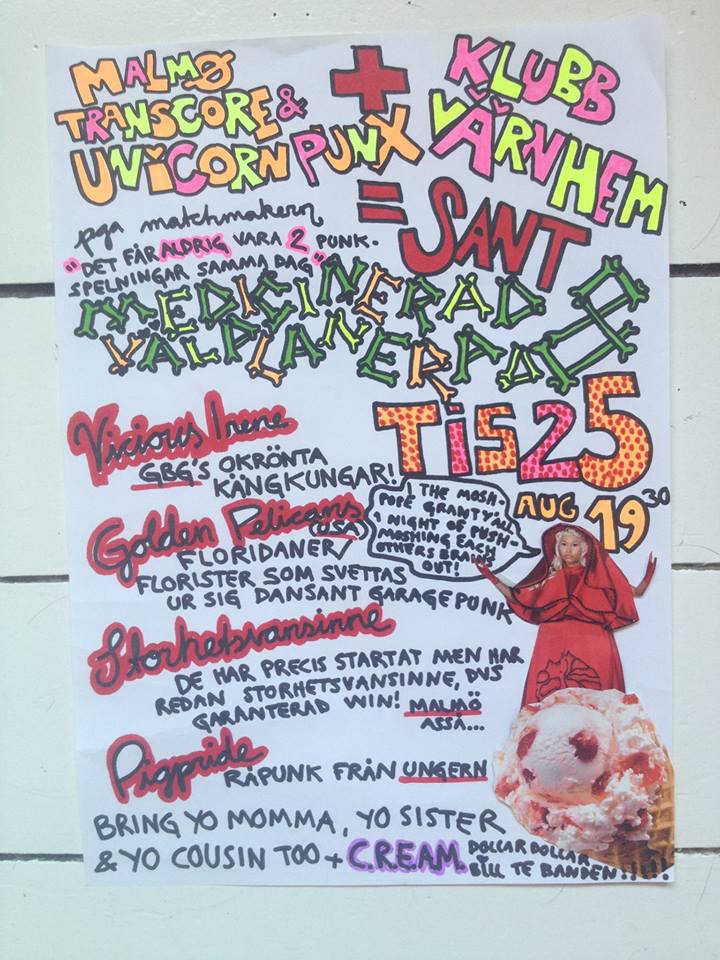 MALMØ
TRANSCORE &
UNICORN PUNX
+
KLUBB
VÄRNHEM
= SANT
pga matchmakern
"DET FÅR ALDRIG VARA 2 PUNK-
SPELNINGAR SAMMA DAG"
MEDICINERAD &
VÄLPLANERAD
TIS 25
AUG 19 30
Vicious Irene
GBG'S OKRÖNTA
KÄNGKUNGAR!
Golden Pelicans
(USA)
FLORIDANER/
FLORISTER SOM SVETTAS
UR SIG DANSANT GARAGEPUNK
THE MOSH-
POPE GRANT Y'ALL
1 NIGHT OF PUSH-
MOSHING EACH
OTHERS BRAINS
OUT!
Storhetsvansinne
DE HAR PRECIS STARTAT MEN HAR
REDAN STORHETSVANSINNE, DVS
GARANTERAD WIN! MALMÖ
ASSÅ...
Pigpride
RÅPUNK FRÅN UNGERN
BRING YO MOMMA, YO SISTER
& YO COUSIN TOO + C.R.E.A.M. DOLLAR DOLLAR
BILL TE BANDEN!!!!!